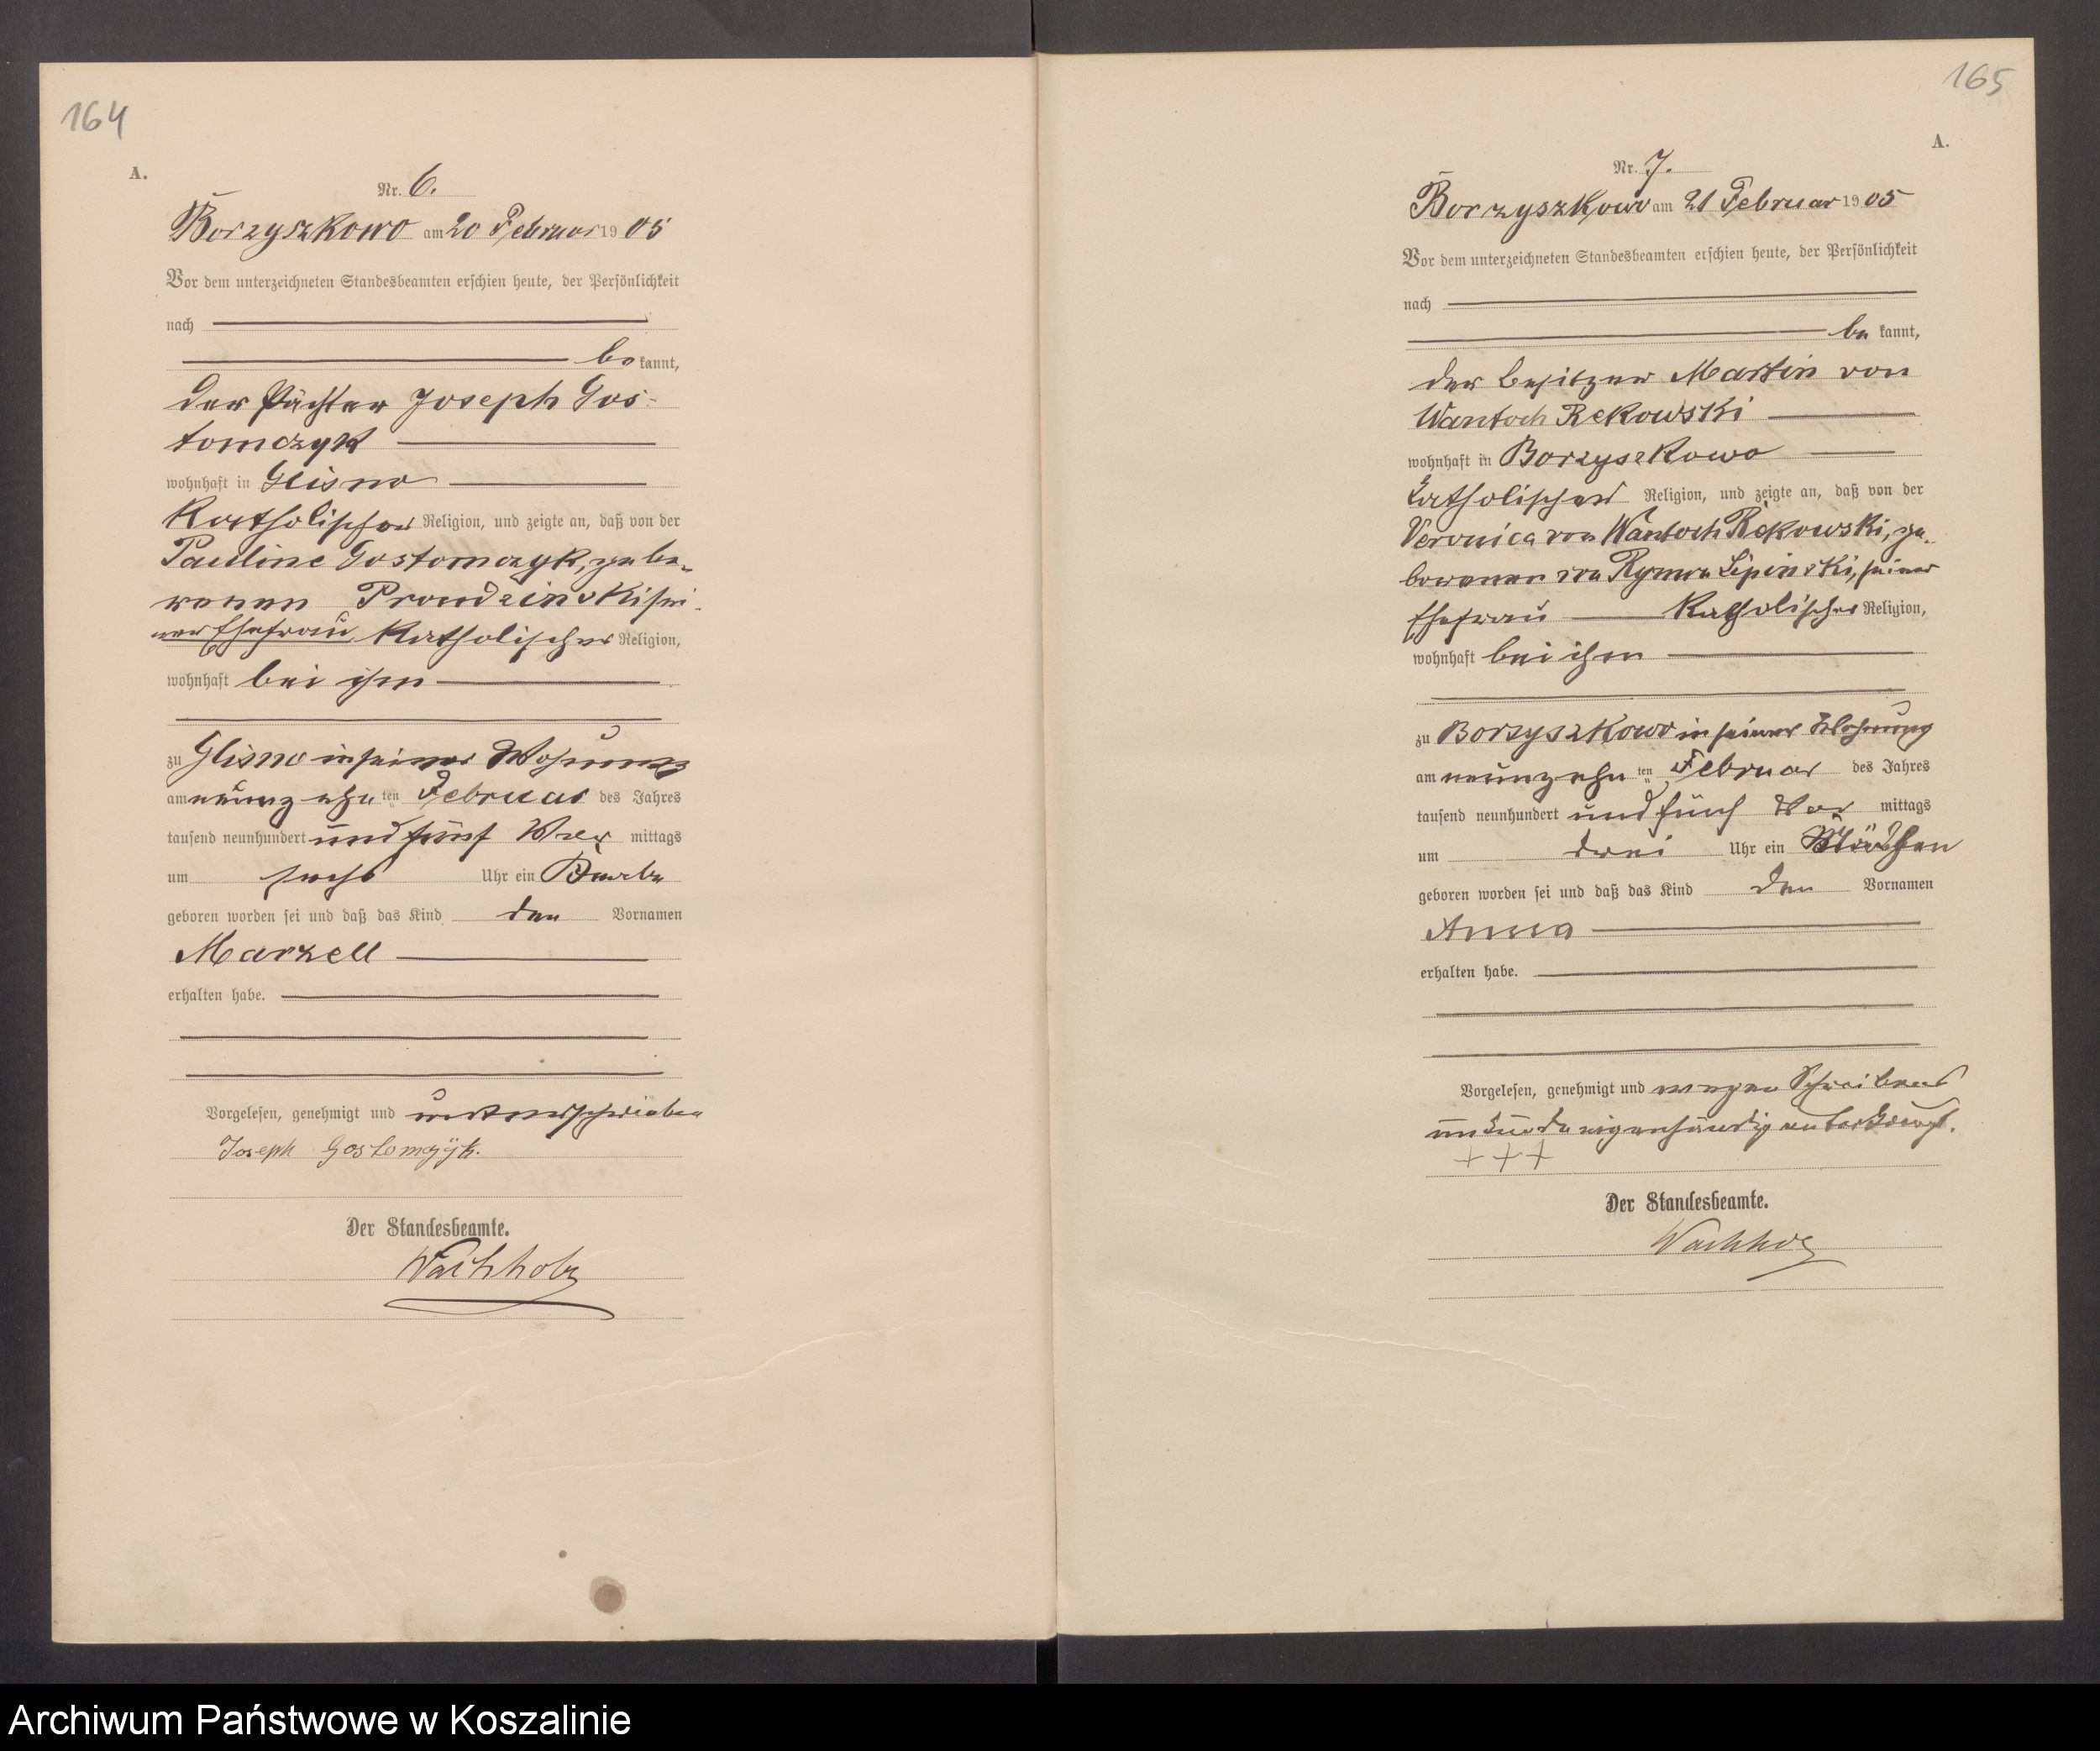 164
A.
Nr. 6.
Borzyszkowo am 20 Februar 1905
Vor dem unterzeichneten Standesbeamten erschien heute, der Persönlichkeit
nach
be kannt,
der Pächter Joseph Gos-
tomczyk
wohnhaft in Glisno
katholischer Religion, und zeigte an, daß von der
Pauline Gostomczyk, gebo-
renen Prondzinski sei-
ner Ehefrau katholischer Religion,
wohnhaft bei ihm
zu Glisno in seiner Wohnung
am neunzehn ten Februar des Jahres
tausend neunhundert und fünf Vor mittags
um sechs Uhr ein Knabe
geboren worden sei und daß das Kind den Vornamen
Marzell
erhalten habe.
Vorgelesen, genehmigt und unterschrieben
Joseph Gostomzyk.
Der Standesbeamte.
Wachholz
165
A.
Nr. 7.
Borzyszkowo am 21 Februar 1905
Vor dem unterzeichneten Standesbeamten erschien heute, der Persönlichkeit
nach
be kannt,
der Besitzer Martin von
Wantoch Rekowski
wohnhaft in Borzyszkowo
katholischer Religion, und zeigte an, daß von der
Veronica von Wantoch Rekowski, ge-
borenen von Rymon Lipinski, seiner
Ehefrau katholischer Religion,
wohnhaft bei ihm
zu Borzyszkowo in seiner Wohnung
am neunzehn ten Februar des Jahres
tausend neunhundert und fünf Vor mittags
um drei Uhr ein Mädchen
geboren worden sei und daß das Kind den Vornamen
Anna
erhalten habe.
Vorgelesen, genehmigt und wegen Schreibens
unkunde eigenhändig unterkreuzt.
+ + +
Der Standesbeamte.
Wachholz
Archiwum Państwowe w Koszalinie